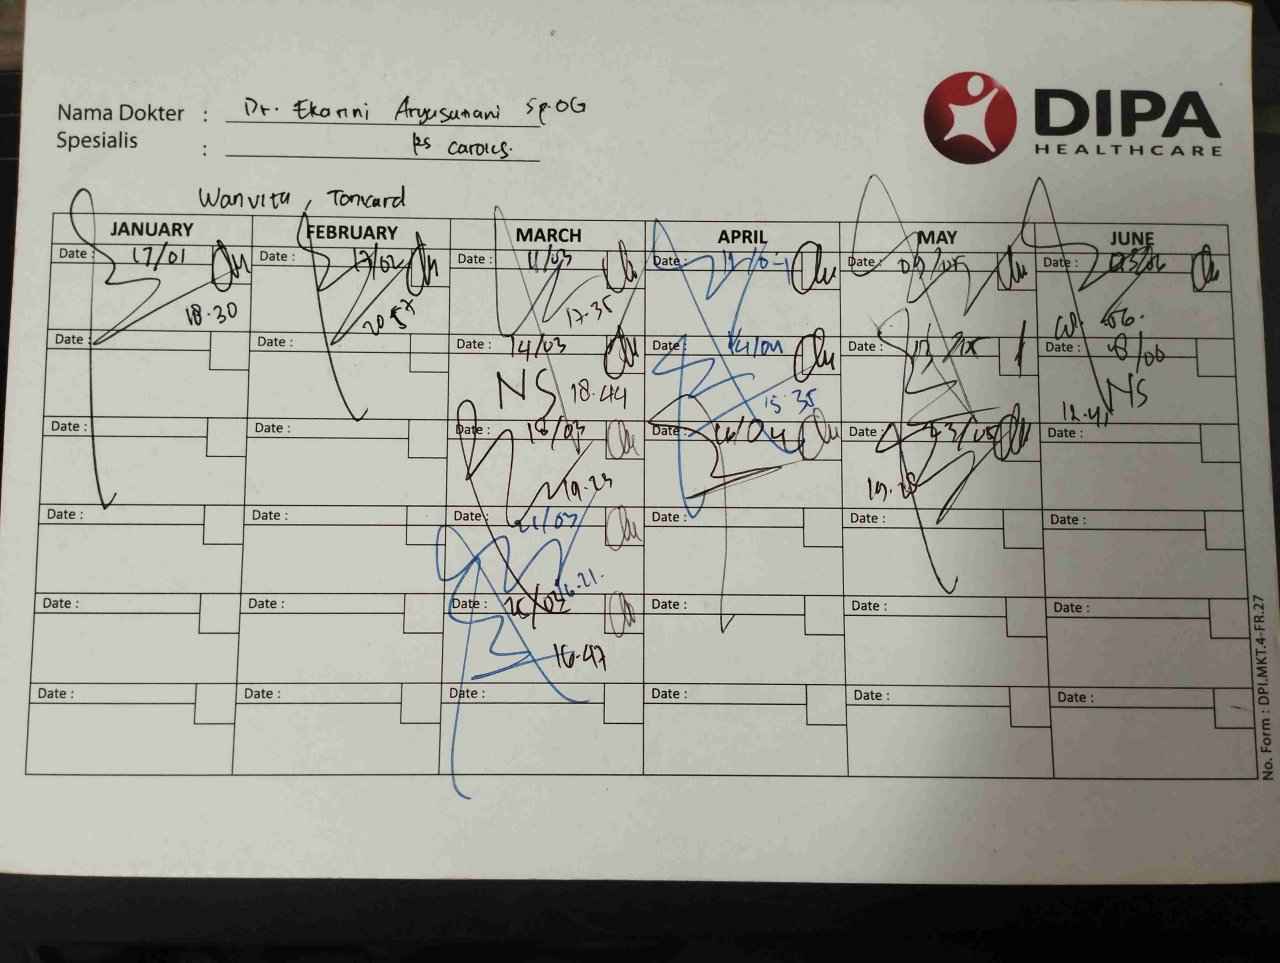 DIPA
HEALTHCARE
Nama Dokter : Dr. Ekarini Aryusunani Sp.OG
Spesialis : RS carolus.
Wanvita, Toncard
JANUARY FEBRUARY MARCH APRIL MAY JUNE
Date : 17/01 Date : 17/02 Date : 11/03 Date : Date : Date : 03/06
18.30 17.35
Date : Date : Date : 14/03 Date : 14/04 Date : Date : 8/06
NS 18.44 15.35 NS
12.41
Date : Date : Date : 18/03 Date : Date : 23/05 Date :
19.23
Date : Date : Date : 21/03 Date : Date : Date :
16.21.
Date : Date : Date : 25/03 Date : Date : Date :
16.47
Date : Date : Date : Date : Date : Date :
No. Form : DPI.MKT.4-FR.27